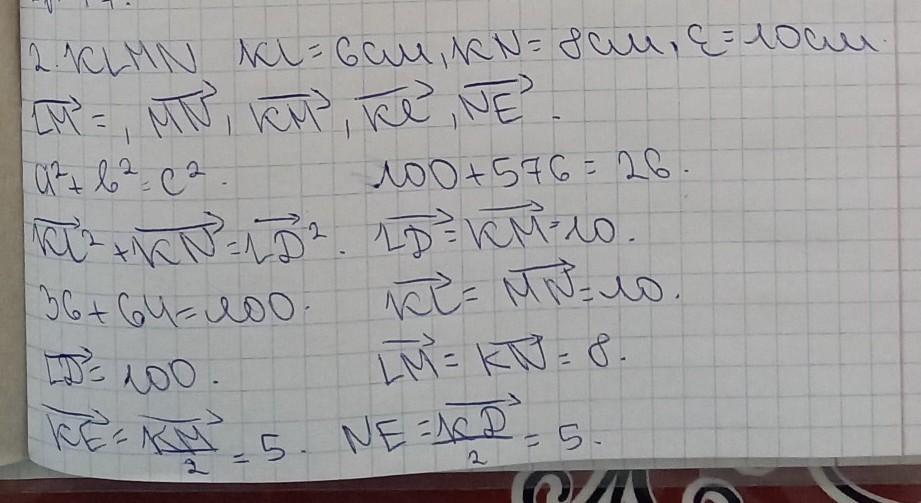 2. KLMN KL = 6 см, KN = 8 см, E = 10 см.
$\overrightarrow{LM}$ = , $\overrightarrow{MN}$, $\overrightarrow{KM}$, $\overrightarrow{KE}$, $\overrightarrow{NE}$.
a² + b² = c². 100 + 576 = 26.
$\overrightarrow{KL}$² + $\overrightarrow{KN}$ = $\overrightarrow{LD}$². $\overrightarrow{LD}$ = $\overrightarrow{KM}$ = 10.
36 + 64 = 100. $\overrightarrow{KL}$ = $\overrightarrow{MN}$ = 10.
$\overrightarrow{LD}$ = 100. $\overrightarrow{LM}$ = $\overrightarrow{KN}$ = 8.
$\overrightarrow{KE}$ = $\frac{\overrightarrow{KM}}{2}$ = 5. NE = $\frac{\overrightarrow{KD}}{2}$ = 5.